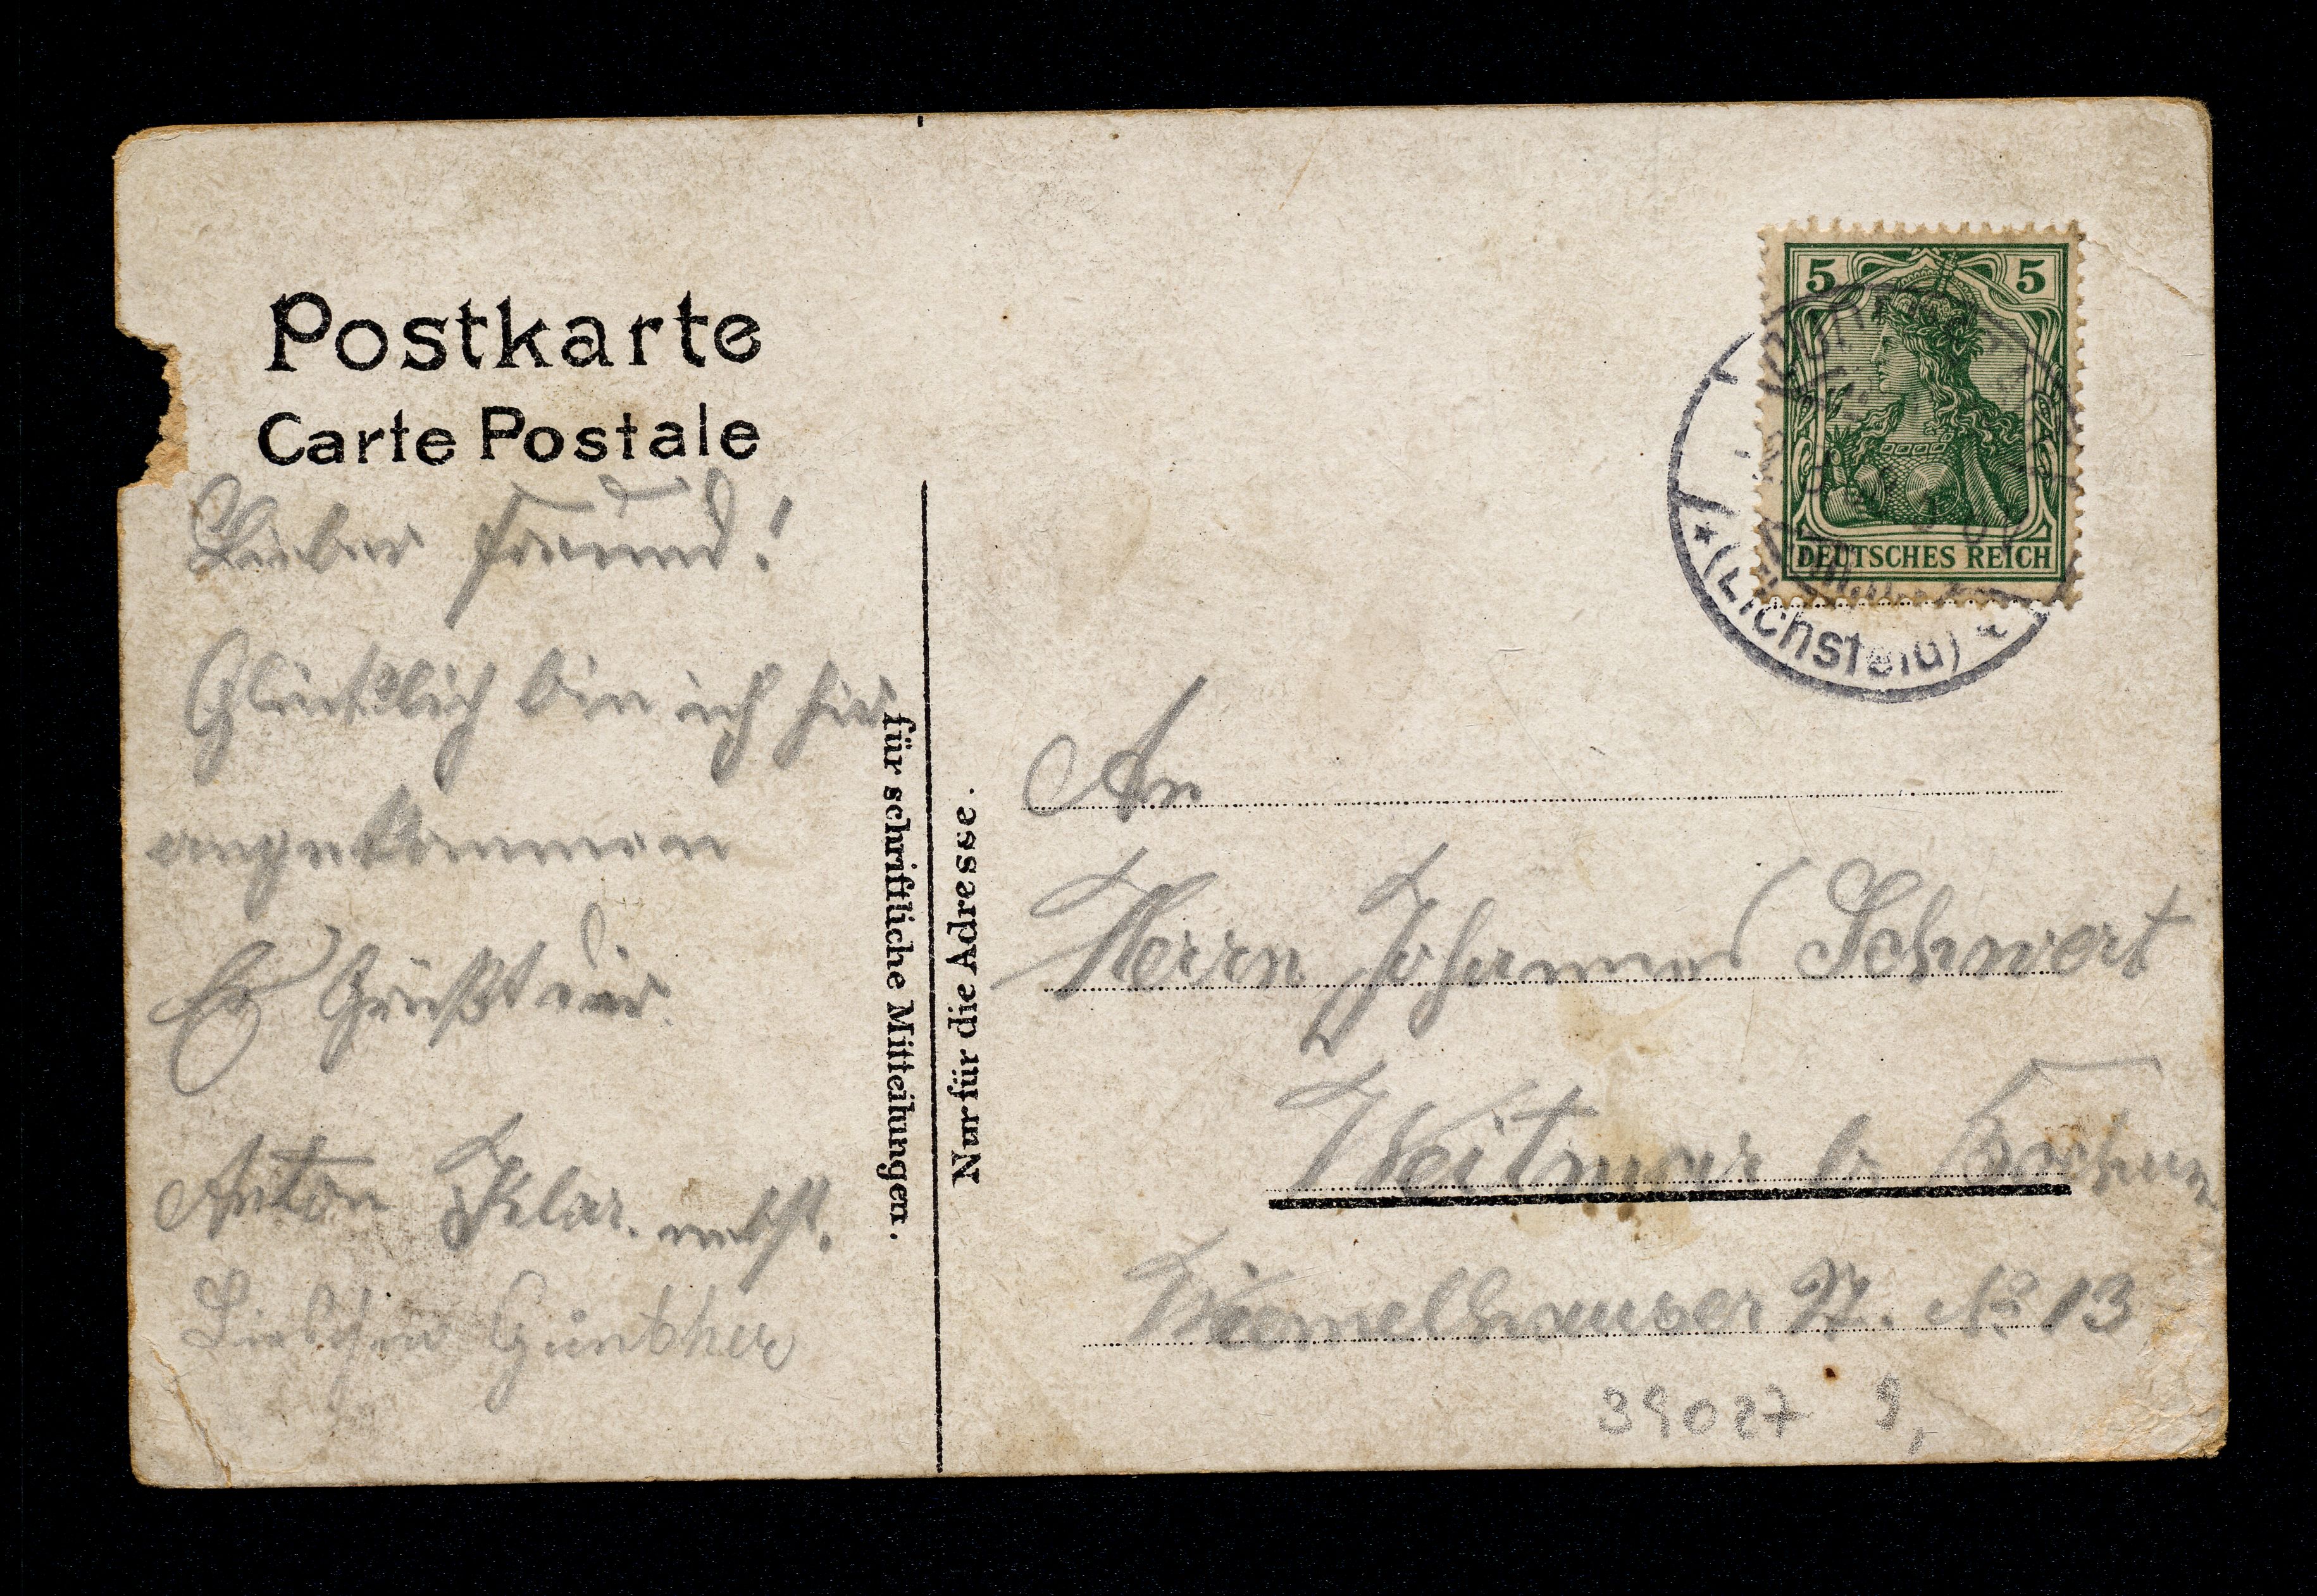 Postkarte
Carte Postale
Lieber Freund!
Glücklich bin ich hier
angekommen
Es Grüßt dir
Anton Klar. nebst.
Liebchen Günther
für schriftliche Mitteilungen.
Nur für die Adresse.
5 5
DEUTSCHES REICH
(Eichsfeld)
An
Herrn Johannes Schwert
Weitmar b Bochum
No 13
39027 9,